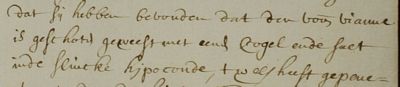 dat sij hebben bevonden dat den voors vianne
is geschoten geweest met eenen cogel ende sact
inde slincke hijpoconde, twelc heeft gepene-